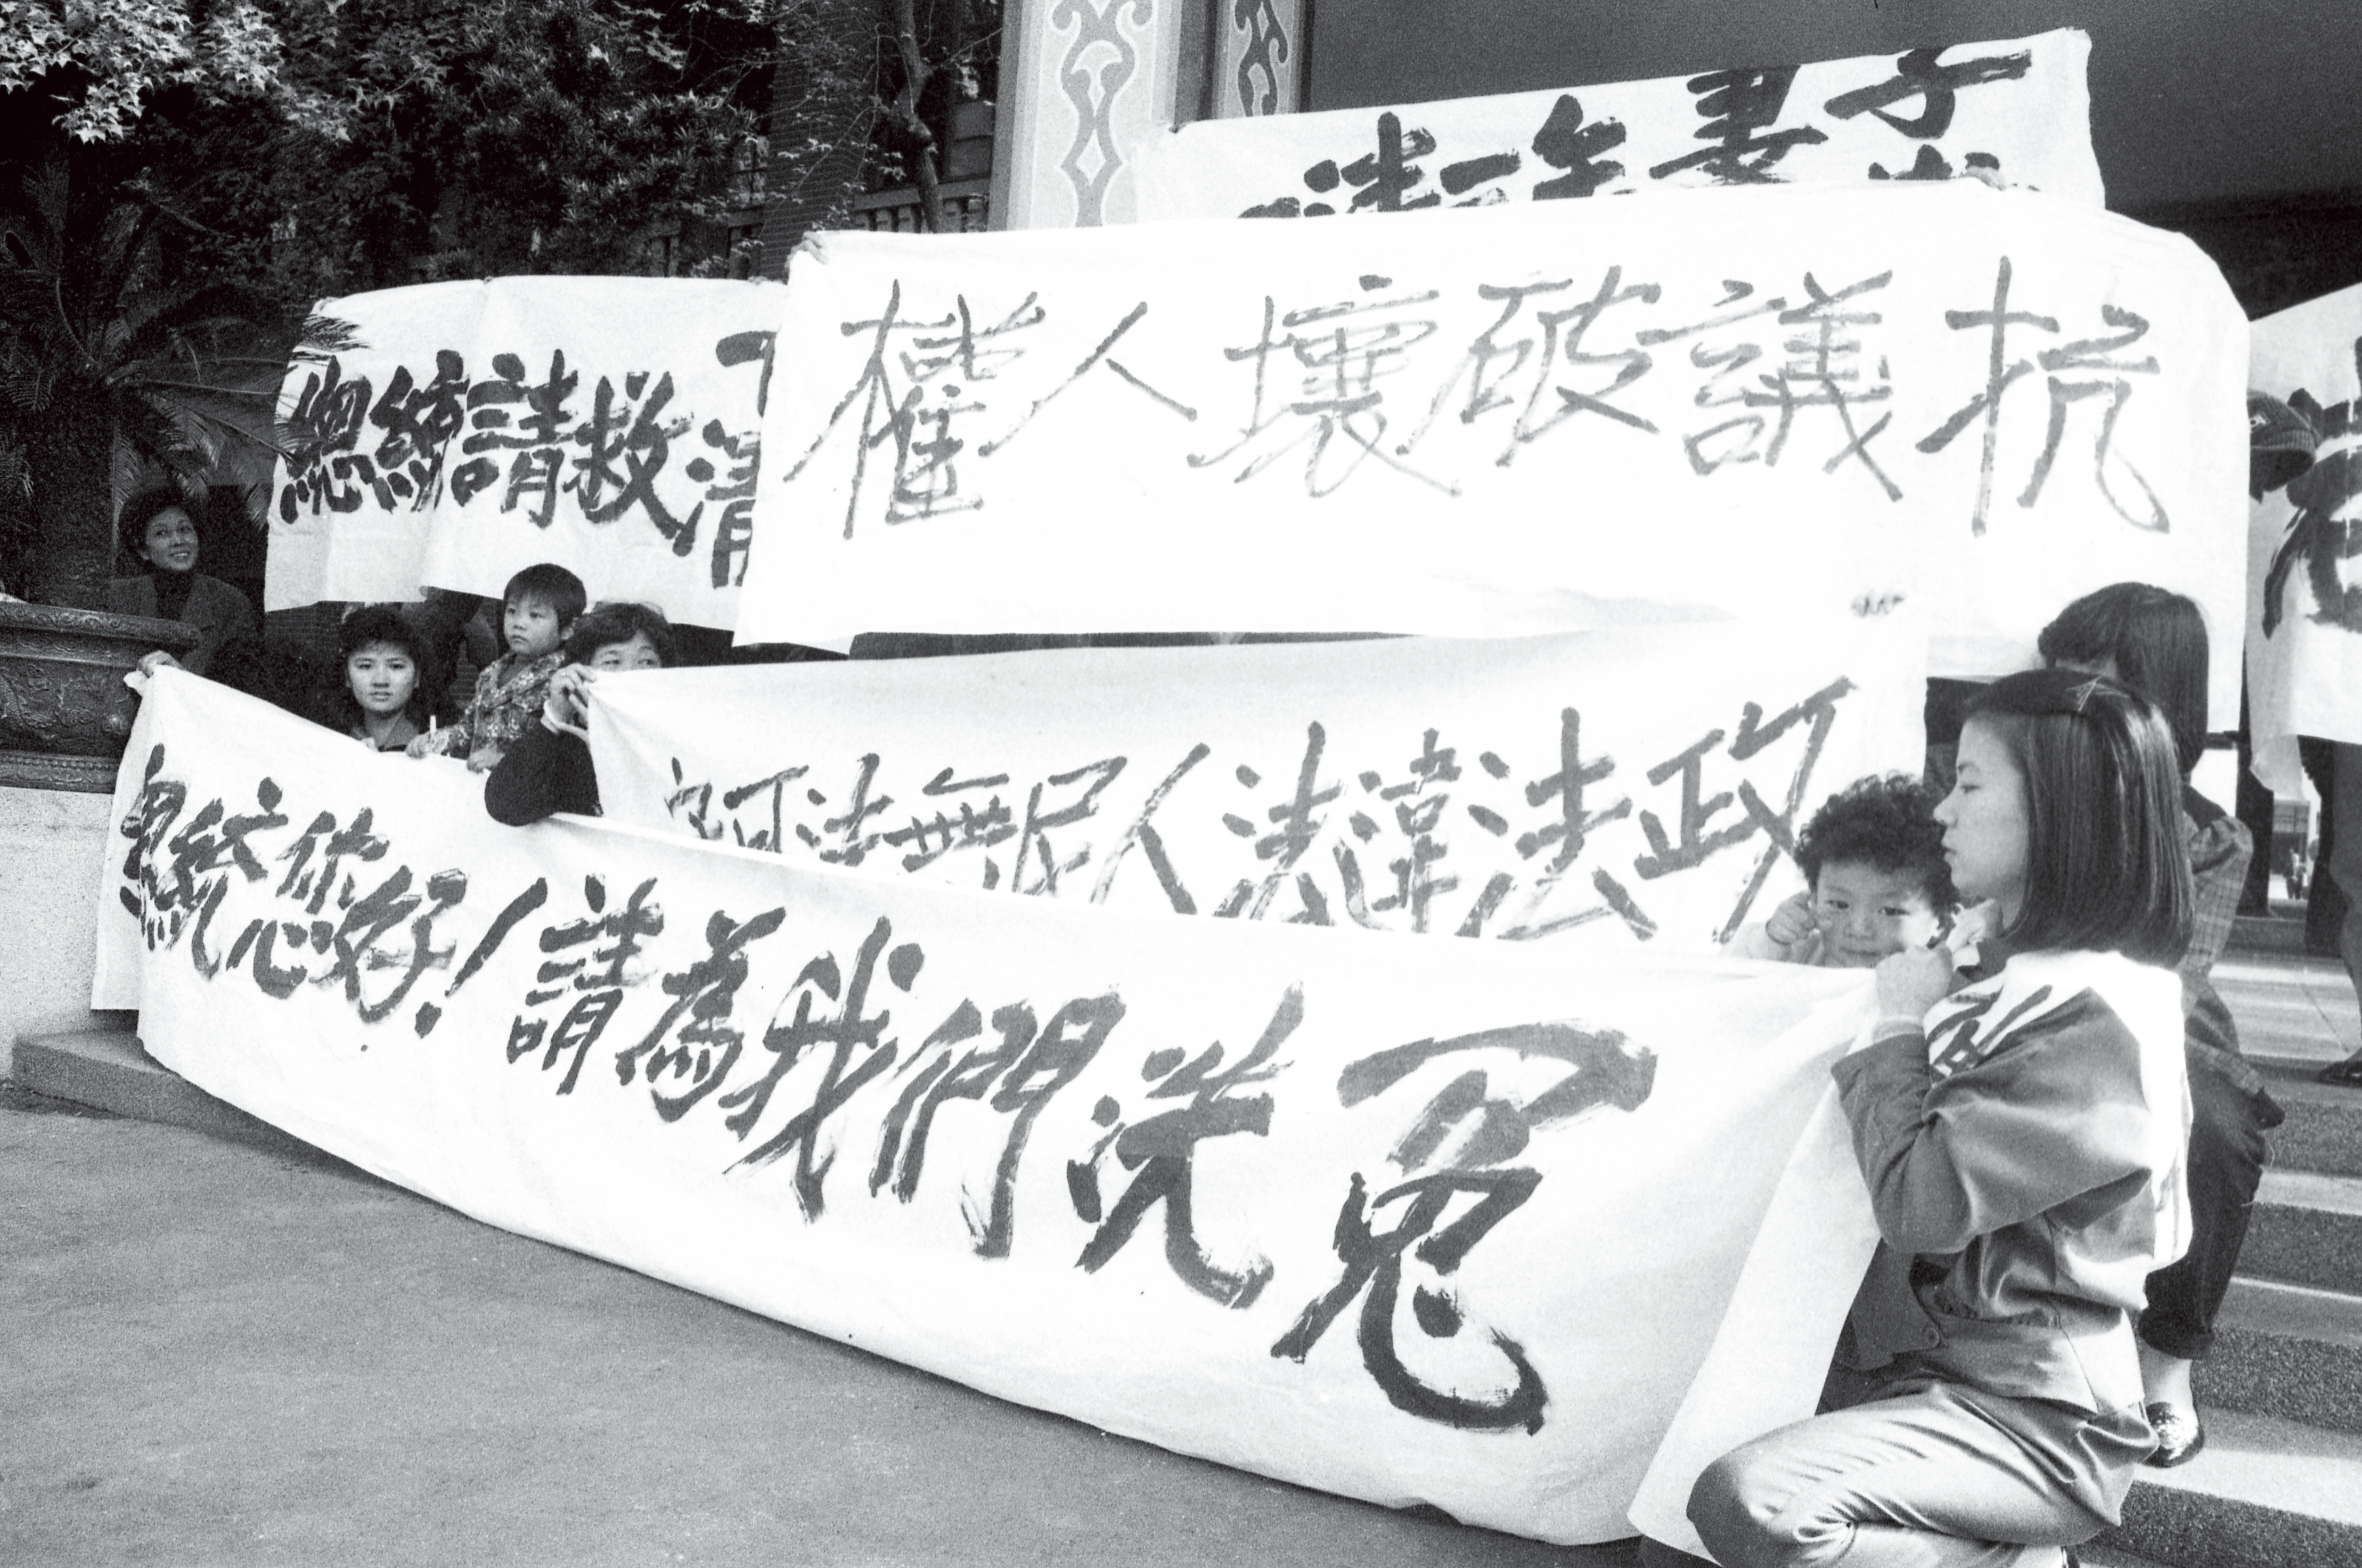 妻子
總統請救清
抗議破壞人權
政法違法人民無法可
總統您好!請為我們洗冤